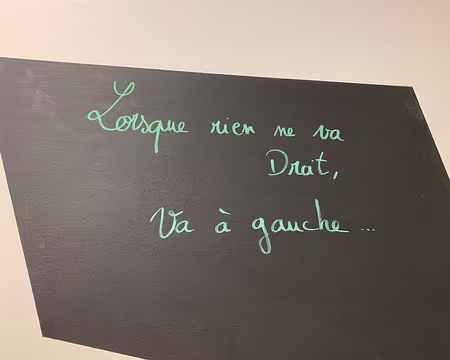 Lorsque rien ne va
Droit,
Va à gauche ...